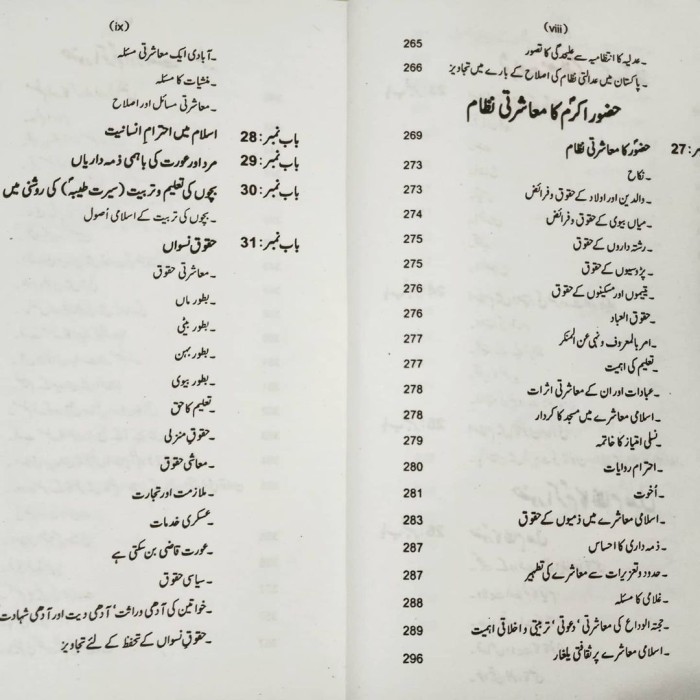 (viii)
۔عدلیہ کا انتظامیہ سے علیحدگی کا تصور 265
۔پاکستان میں عدالتی نظام کی اصلاح کے بارے میں تجاویز 266
حضور اکرمؐ کا معاشرتی نظام
ر:27 حضورؐ کا معاشرتی نظام 269
۔نکاح 273
۔والدین اور اولاد کے حقوق و فرائض 273
۔میاں بیوی کے حقوق و فرائض 274
۔رشتہ داروں کے حقوق 275
۔پڑوسیوں کے حقوق 275
۔یتیموں اور مسکینوں کے حقوق 276
۔حقوق العباد 276
۔امر بالمعروف و نہی عن المنکر 277
۔تعلیم کی اہمیت 277
۔عبادات اور ان کے معاشرتی اثرات 278
۔اسلامی معاشرے میں مسجد کا کردار 278
۔نسلی امتیاز کا خاتمہ 279
۔احترام روایات 280
۔اُخوت 281
۔اسلامی معاشرے میں ذمیوں کے حقوق 283
۔ذمہ داری کا احساس 287
۔حدود و تعزیرات سے معاشرے کی تطہیر 287
۔غلامی کا مسئلہ 288
۔حجتہ الوداع کی معاشرتی‘ دعوتی‘ تربیتی و اخلاقی اہمیت 289
۔اسلامی معاشرے پر ثقافتی یلغار 296
(ix)
۔آبادی ایک معاشرتی مسئلہ
۔منشیات کا مسئلہ
۔معاشرتی مسائل اور اصلاح
باب نمبر: 28 اسلام میں احترامِ انسانیت
باب نمبر: 29 مرد اور عورت کی باہمی ذمہ داریاں
باب نمبر: 30 بچوں کی تعلیم و تربیت (سیرت طیبہؐ) کی روشنی میں
۔بچوں کی تربیت کے اسلامی اُصول
باب نمبر: 31 حقوق نسواں
۔معاشرتی حقوق
۔بطور ماں
۔بطور بیٹی
۔بطور بہن
۔بطور بیوی
۔تعلیم کا حق
۔حقوقِ منزلی
۔معاشی حقوق
۔ملازمت اور تجارت
۔عسکری خدمات
۔عورت قاضی بن سکتی ہے
۔سیاسی حقوق
۔خواتین کی آدھی وراثت‘ آدھی دیت اور آدھی شہادت
۔حقوقِ نسواں کے تحفظ کے لئے تجاویز